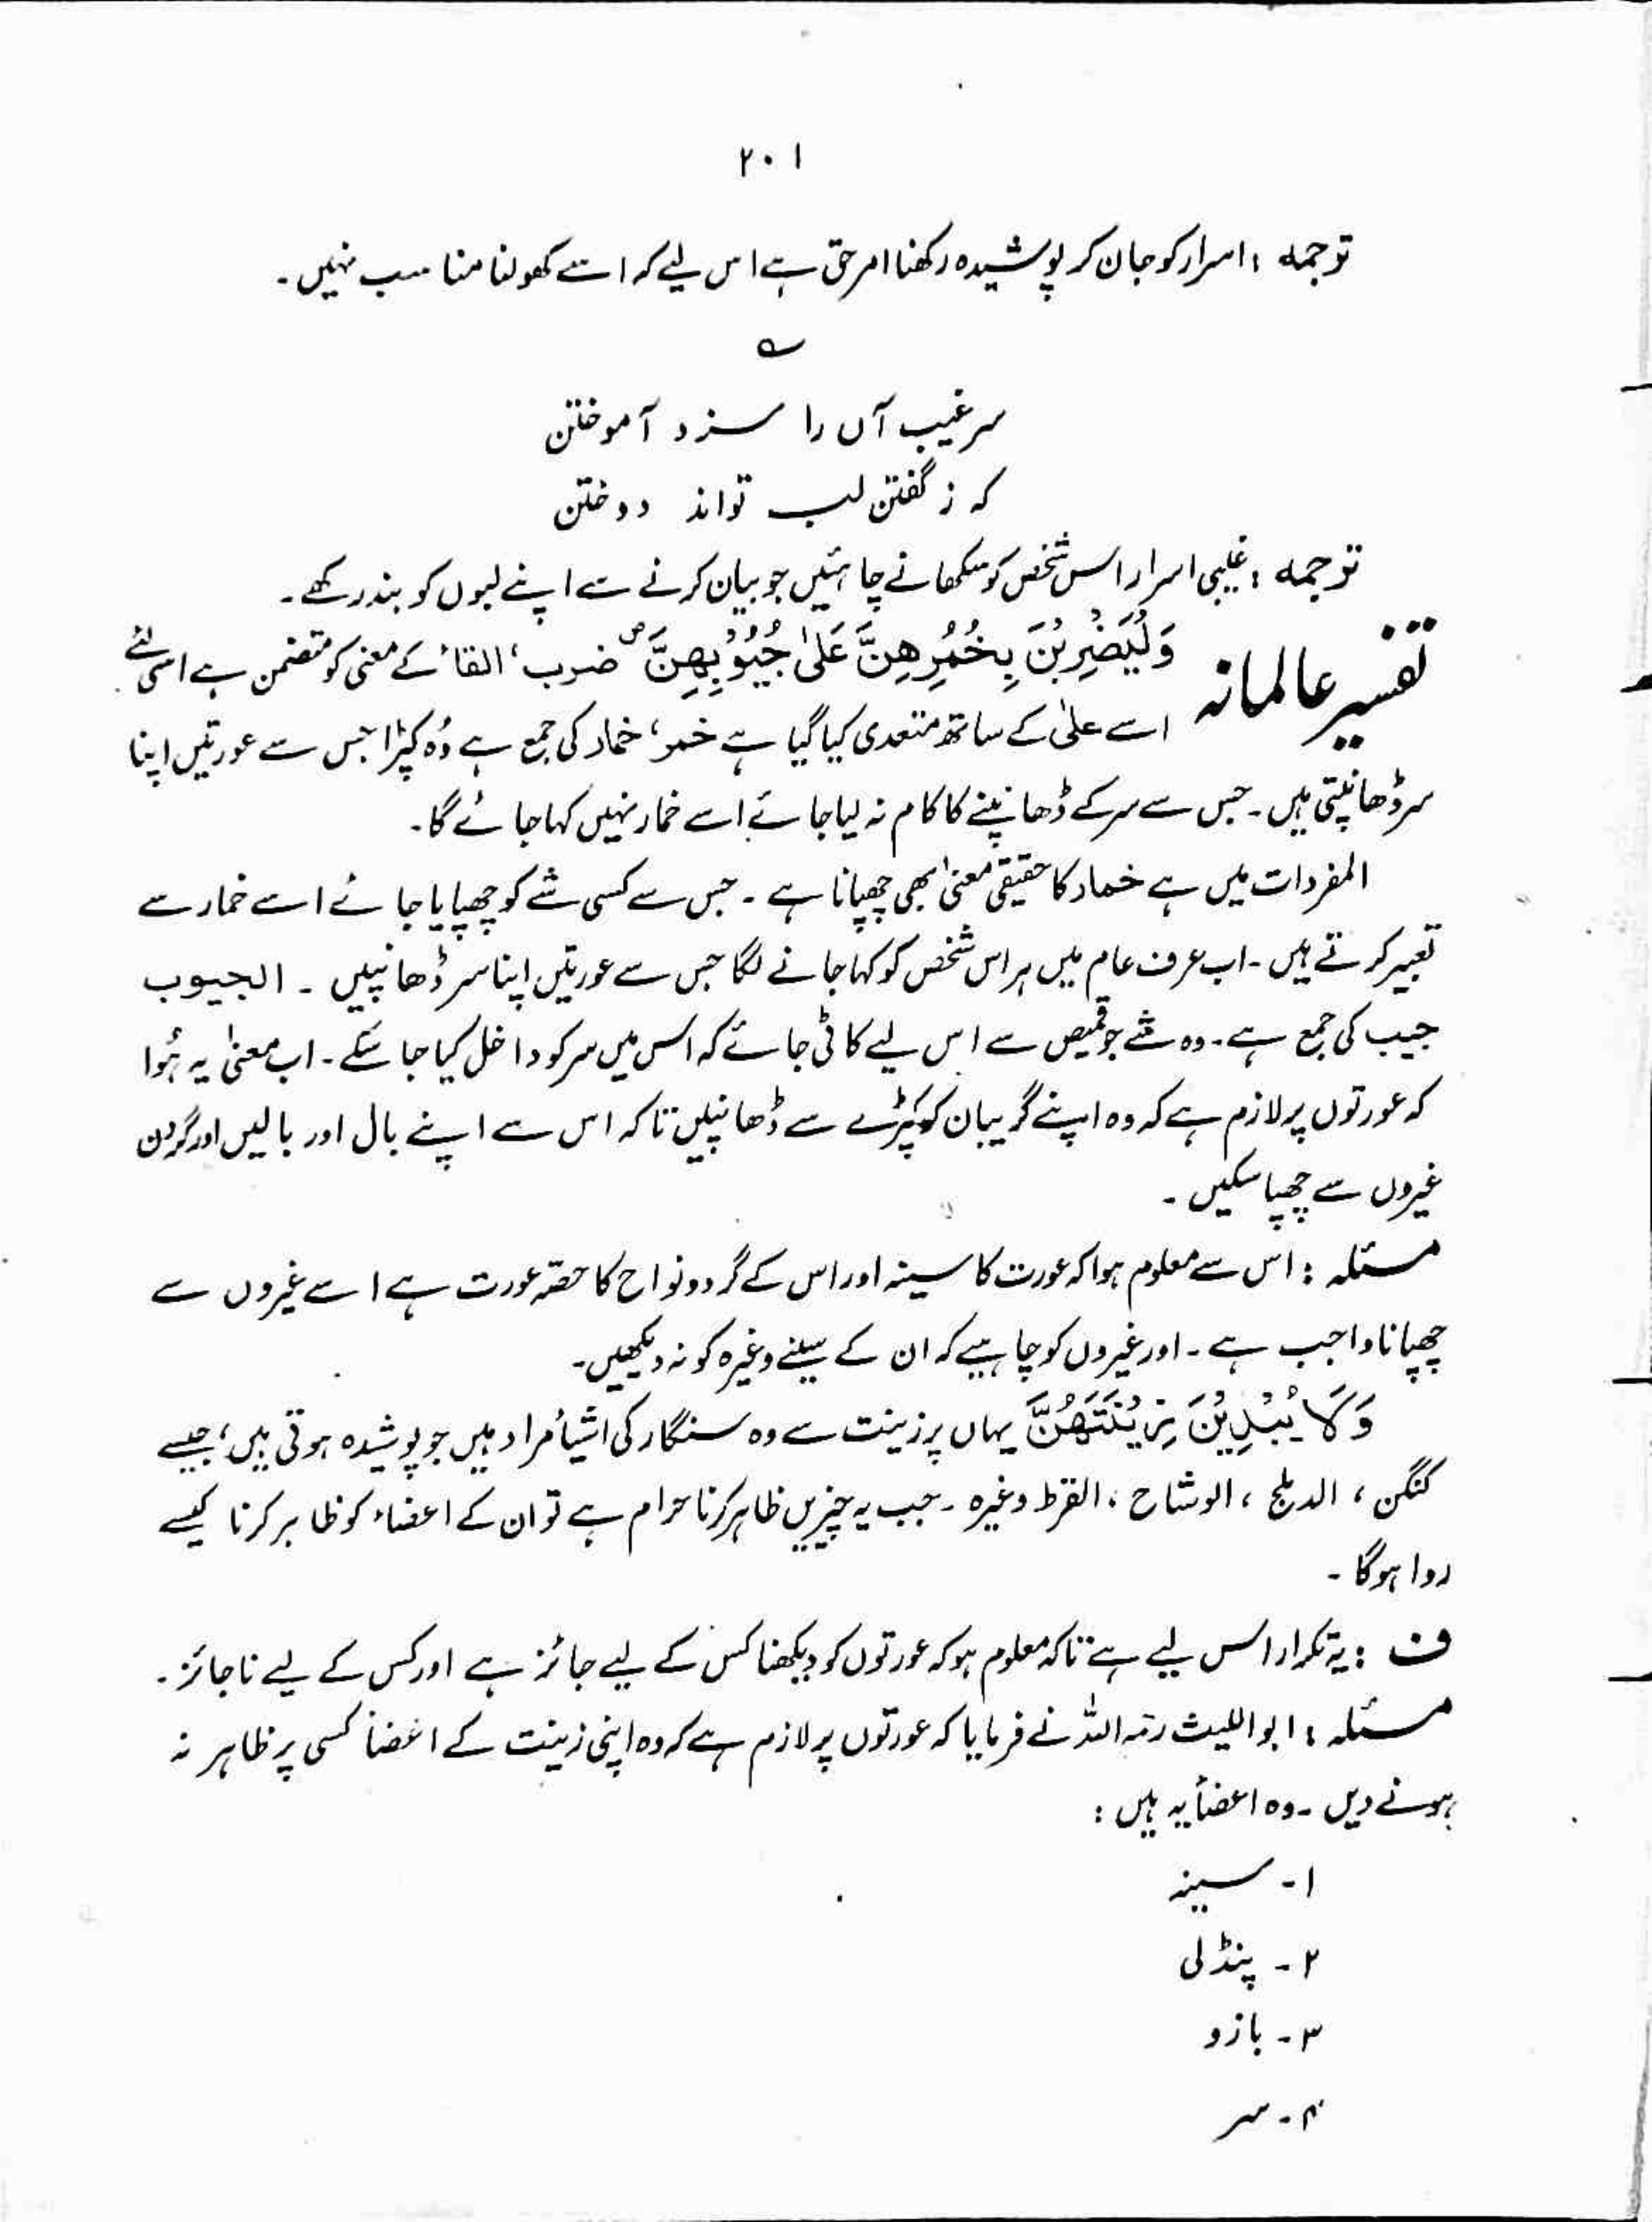 ۲۰۱
ترجمہ : اسرار کو جان کر پوشیدہ رکھنا امر حق ہے اس لیے کہ اسے کھولنا مناسب نہیں ۔
؎
سر غیب آں را سزد آموختن
کہ ز گفتن لب تواند دوختن
ترجمہ : غیبی اسرار اس شخص کو سکھانے چاہئیں جو بیان کرنے سے اپنے لبوں کو بند رکھے ۔
تفسیر عالمانہ وَلْيَضْرِبْنَ بِخُمُرِهِنَّ عَلٰى جُيُوْبِهِنَّ ص ضرب ، القاء کے معنی کو متضمن ہے اسی لئے
اسے علیٰ کے ساتھ متعدی کیا گیا ہے خمر ، خمار کی جمع ہے وُہ کپڑا جس سے عورتیں اپنا
سر ڈھانپتی ہیں ۔ جس سے سر کے ڈھانپنے کا کام نہ لیا جائے اسے خمار نہیں کہا جائے گا ۔
المفردات میں ہے خمار کا حقیقی معنیٰ بھی چھپانا ہے ۔ جس سے کسی شے کو چھپایا جائے اسے خمار سے
تعبیر کرتے ہیں ۔ اب عرف عام میں ہر اس شخص کو کہا جانے لگا جس سے عورتیں اپنا سر ڈھانپیں ۔ الجیوب
جیب کی جمع ہے ۔ وہ شے جو قمیص سے اس لیے کاٹی جائے کہ اس میں سر کو داخل کیا جا سکے ۔ اب معنیٰ یہ ہُوا
کہ عورتوں پر لازم ہے کہ وہ اپنے گریبان کو کپڑے سے ڈھانپیں تاکہ اس سے اپنے بال اور بالیں اور گردن
غیروں سے چھپا سکیں ۔
مسئلہ : اس سے معلوم ہوا کہ عورت کا سینہ اور اس کے گرد و نواح کا حصّہ عورت ہے اسے غیروں سے
چھپانا واجب ہے ۔ اور غیروں کو چاہیے کہ ان کے سینے وغیرہ کو نہ دیکھیں ۔
وَلَا يُبْدِيْنَ زِيْنَتَهُنَّ یہاں پر زینت سے وہ سنگار کی اشیأ مراد ہیں جو پوشیدہ ہوتی ہیں ، جیسے
کنگن ، الدملج ، الوشاح ، القرط وغیرہ ۔ جب یہ چیزیں ظاہر کرنا حرام ہے تو ان کے اعضاء کو ظاہر کرنا کیسے
روا ہوگا ۔
ف : یہ تکرار اس لیے ہے تاکہ معلوم ہو کہ عورتوں کو دیکھنا کس کے لیے جائز ہے اور کس کے لیے ناجائز ۔
مسئلہ : ابواللیث رحمہ اللہ نے فرمایا کہ عورتوں پر لازم ہے کہ وہ اپنی زینت کے اعضأ کسی پر ظاہر نہ
ہونے دیں ۔ وہ اعضأ یہ ہیں :
۱ ۔ سینہ
۲ ۔ پنڈلی
۳ ۔ بازو
۴ ۔ سر